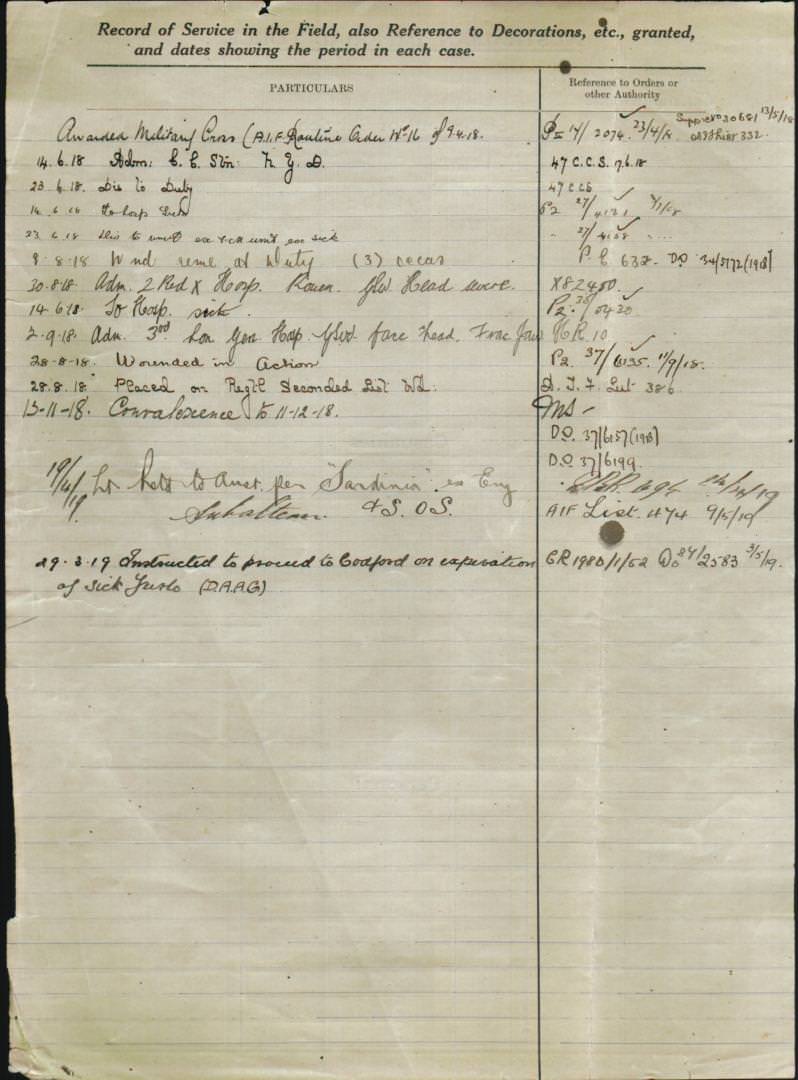 Record of Service in the Field, also Reference to Decorations, etc., granted,
and dates showing the period in each case.
PARTICULARS
Reference to Orders or
other Authority
Awarded Military Cross (A.I.F. Routine Order No 16 of 9.4.18. 14/2074 23/4/18 30681 13/5/18
332.
14.6.18 Adm: C. C. Stn: N. Y. D. 47 C.C.S. 17.6.18
23.6.18. Dis to Duty 47 CCS
14.6.18 To hosp Sick P2 27/
23.6.18 Dis to unit sick 27/
8-8-18 Wnd reme at Duty (3) occas P. C 632. DO 34/5772 (1918)
30.8.18 Adm. 2 Red X Hosp. Rouen. GSW Head severe. X82400.
14-6-18 To Hosp. sick. P2. 0420
2-9-18. Adm. 3rd Lon Gen Hosp GSW face head. Frac Jaw HR 10
28-8-18. Wounded in Action P2 37/6135. 11/9/18.
28.8.18 Placed on Regtl Seconded List A. I. F. List 386
13-11-18. Convalescence to 11-12-18. MS -
DO. 37/6157 (1918)
DO. 37/6199.
19/4/19 Lt to Aust. per "Sardinia" ex Eng
Subaltern. & S. O S. AIF List. 474 9/5/19
29-3-19 Instructed to proceed to Codford on expiration CR 1980/1/52 DO 84/2583 3/5/19.
of sick furlo (D.A.A.G)